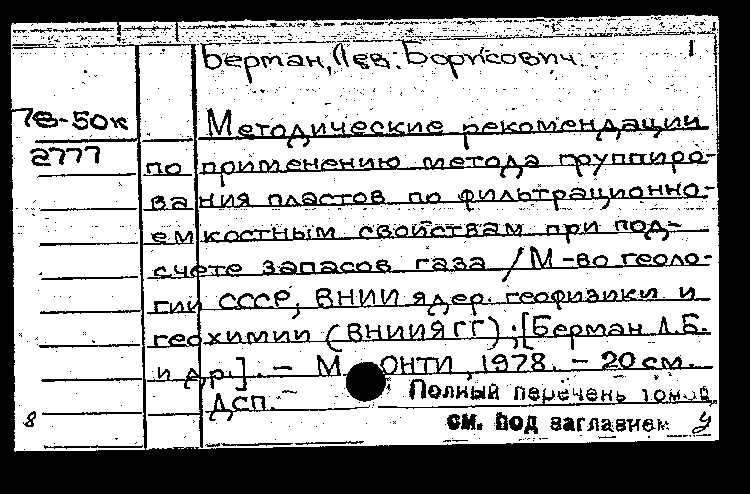 Берман, Лев. Борисович. 1
78-50к Методические рекомендации
2777 по применению метода группиро-
вания пластов по фильтрационно-
емкостным свойствам при под-
счете запасов газа / М-во геоло-
гии СССР, ВНИИ ядер. геофизики и
геохимии (ВНИИЯГГ) ; [Берман Л.Б.
и др.]. - М. ОНТИ, 1978. - 20 см.
Дсп. - Полный перечень томов
8 см. под заглавием у